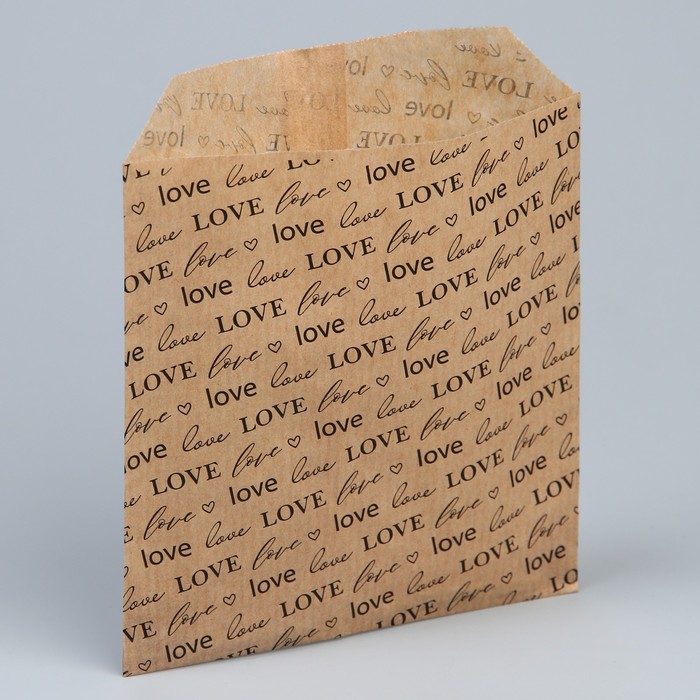 ♡ love love LO
love LOVE love ♡ love love
OVE love ♡ love love LOVE love ♡ love
ve ♡ love love LOVE love ♡ love love LO
ve love LOVE love ♡ love love LOVE love
LOVE love ♡ love love LOVE love ♡ love
love ♡ love love LOVE love ♡ love love L
love love LOVE love ♡ love love LOVE lo
LOVE love ♡ love love LOVE love ♡ lo
E love ♡ love love LOVE love ♡ love love
love love LOVE love ♡ love love LOVE
love LOVE love ♡ love love LOVE love ♡
VE love ♡ love love LOVE love ♡ love love
♡ love love LOVE love ♡ love love LOVE
love ♡ love love LOVE love
LOVE love ♡ love
love LO